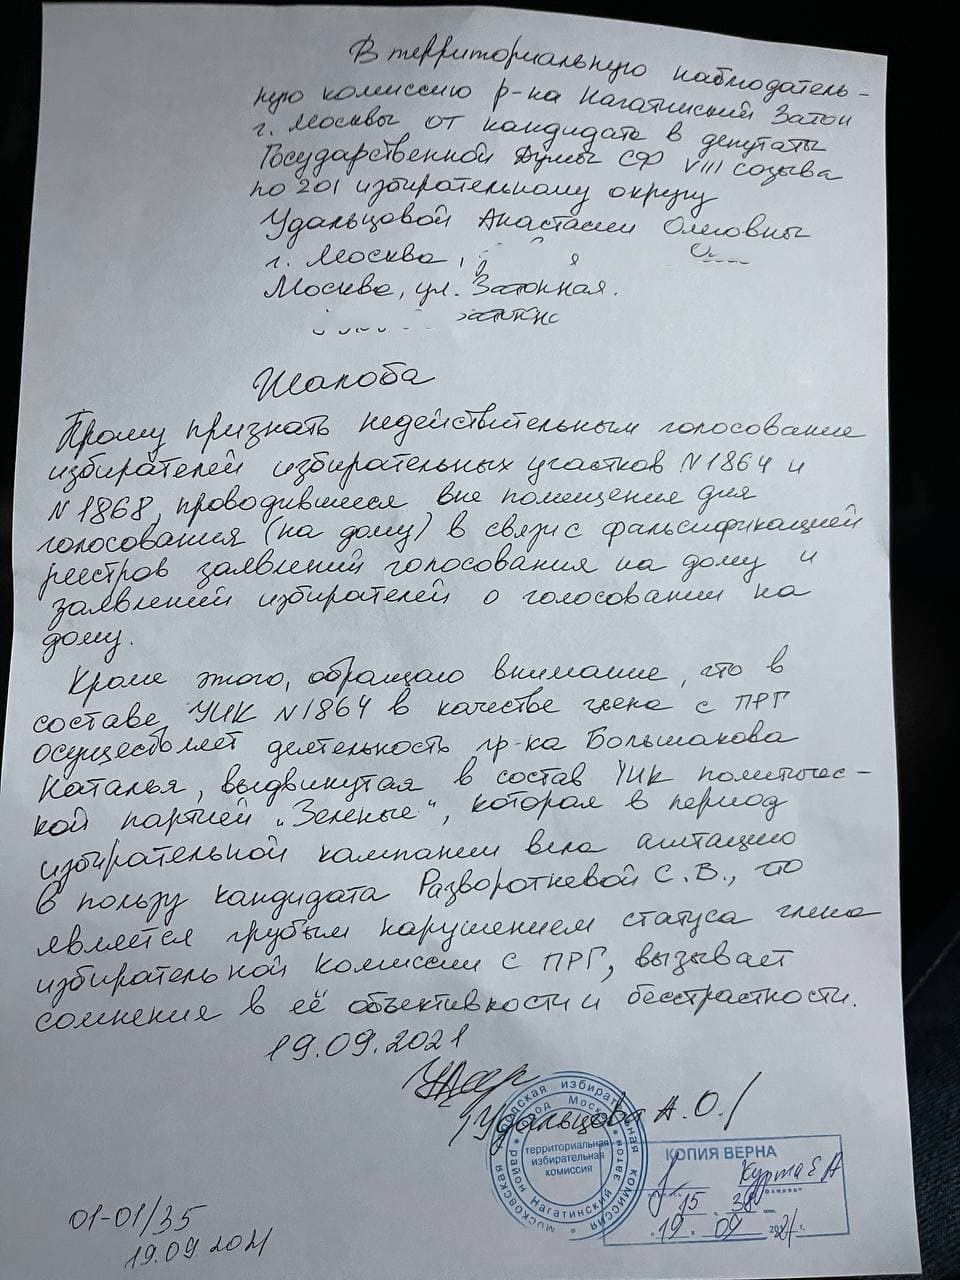 В территориальную наблюдатель-
ную комиссию р-на Нагатинский Затон
г. Москвы от кандидата в депутаты
Государственной Думы СФ VIII созыва
по 201 избирательному округу
Удальцовой Анастасии Олеговны
г. Москва,
Москва, ул. Затонная.
Жалоба
Прошу признать недействительным голосование
избирателей избирательных участков N1864 и
N1868, проводившееся вне помещения для
голосования (на дому) в связи с фальсификацией
реестров заявлений голосования на дому и
заявлений избирателей о голосовании на
дому.
Кроме этого, обращаю внимание, что в
составе УИК N1864 в качестве члена с ПРГ
осуществляет деятельность гр-ка Большакова
Наталья, выдвинутая в состав УИК политичес-
кой партией „Зеленые", которая в период
избирательной кампании вела агитацию
в пользу кандидата Разворотневой С.В., что
является грубым нарушением статуса члена
избирательной комиссии с ПРГ, вызывает
сомнения в её объективности и бесстрастности.
19.09.2021
/Удальцова А.О./
территориальная
избирательная
комиссия
КОПИЯ ВЕРНА
Курта Е А
15 . 38
19 . 09 2021 г.
01-01/35
19.09 2021